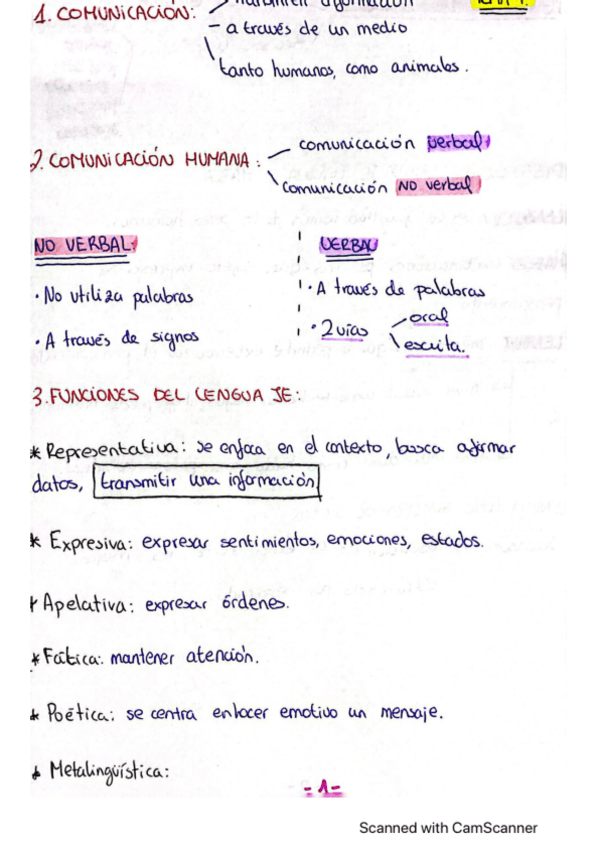 transmiten información TEMA 1.
1. COMUNICACIÓN: - a través de un medio
tanto humanos, como animales.
2. COMUNICACIÓN HUMANA: comunicación verbal
comunicación NO verbal
NO VERBAL: VERBAL
· No utiliza palabras · A través de palabras
· A través de signos · 2 vías oral
escrita.
3. FUNCIONES DEL LENGUAJE:
* Representativa: se enfoca en el contexto, busca afirmar
datos, transmitir una información
* Expresiva: expresar sentimientos, emociones, estados.
* Apelativa: expresar órdenes.
* Fática: mantener atención.
* Poética: se centra en hacer emotivo un mensaje.
* Metalingüística:
- 1 -
Scanned with CamScanner